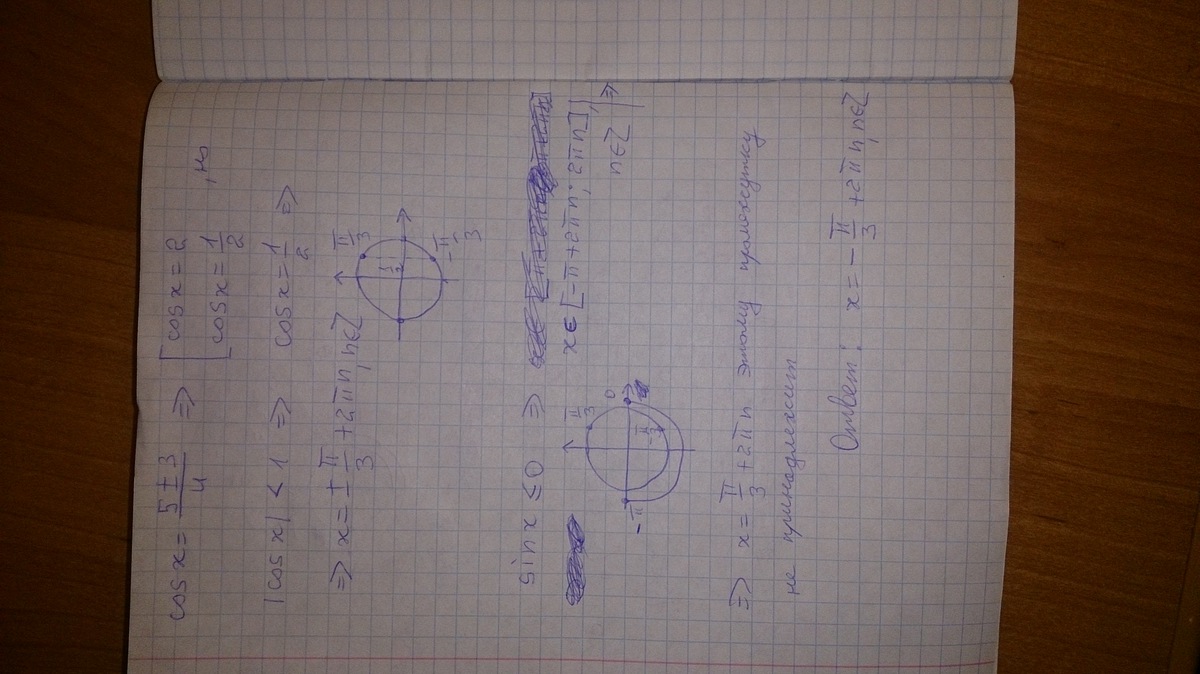 cos x = (5 ± 3)/4 ⇒ [ cos x = 2
cos x = 1/2 , но
|cos x| < 1 ⇒ cos x = 1/2 ⇒
⇒ x = ± π/3 + 2πn, n∈Z
π/3
1/2
-π/3
sin x ≤ 0 ⇒
x ∈ [-π + 2πn; 2πn], ⇒
n∈Z
π/3
0
-π
-π/3
⇒ x = π/3 + 2πn этому промежутку
не принадлежит
Ответ: x = - π/3 + 2πn, n∈Z